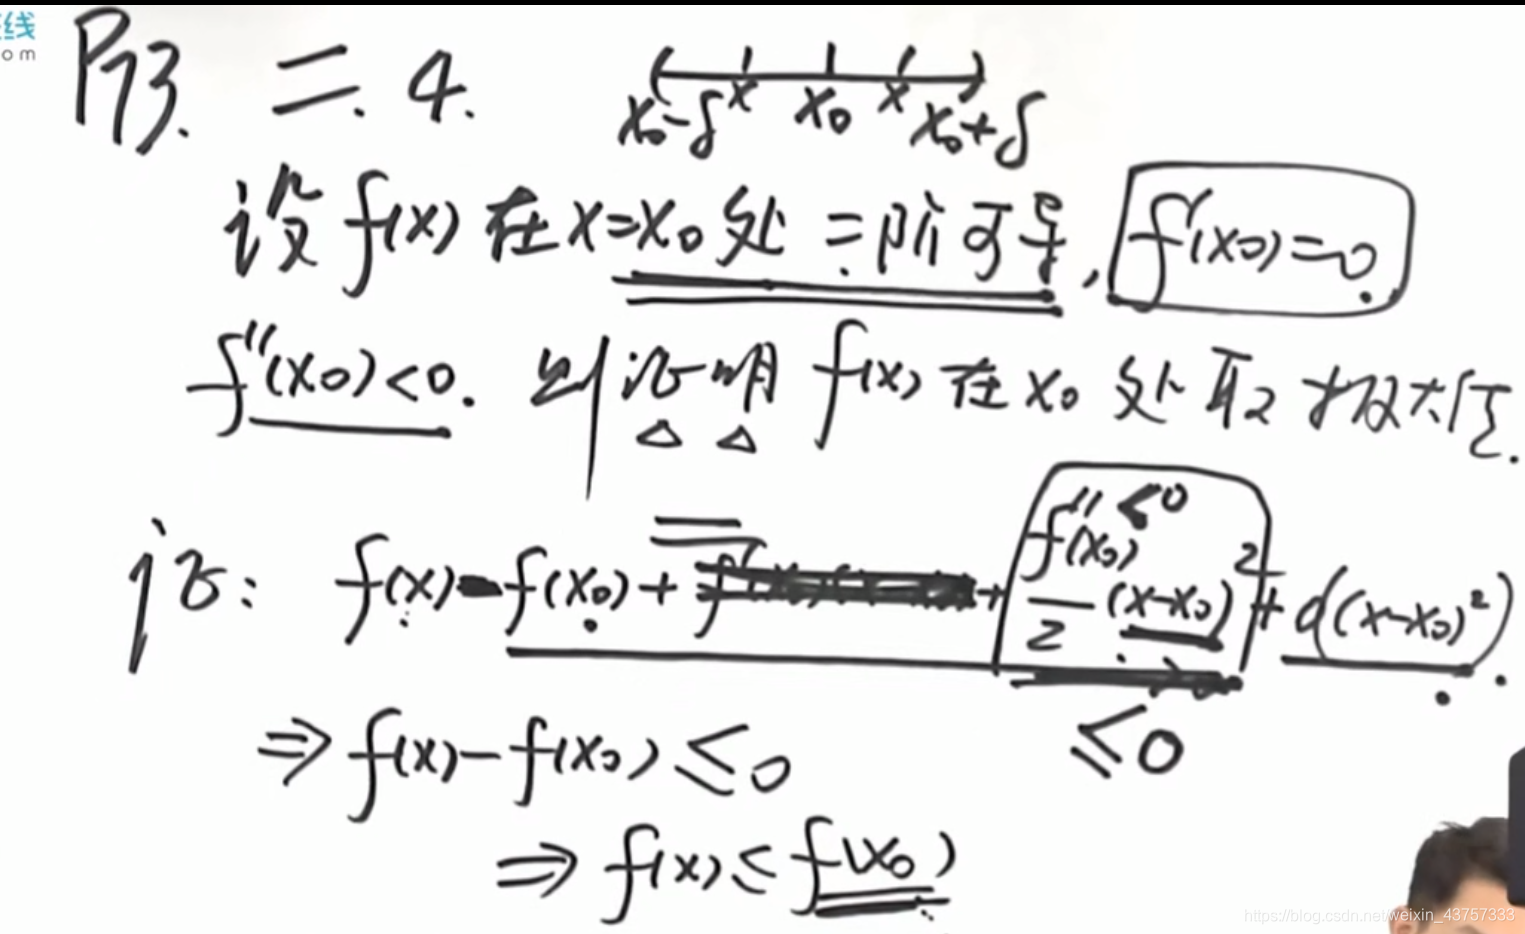 线
om
P73. 二. 4.
x₀-δ x x₀ x x₀+δ
设 f(x) 在 x=x₀ 处 二阶可导, f'(x₀)=0.
f''(x₀)<0. 则证明 f(x) 在 x₀ 处取极大值.
证: f(x)-f(x₀)+ + f''(x₀)<0/2 (x-x₀)² + o((x-x₀)²).
≤0
⇒ f(x)-f(x₀)≤0
⇒ f(x)≤f(x₀)
https://blog.csdn.net/weixin_43757333